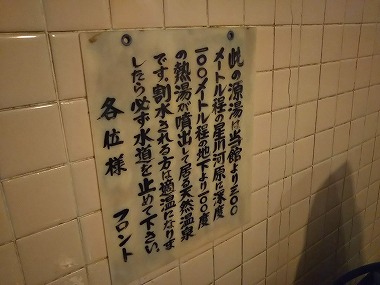 此の源湯は当館より三〇〇
メートル程の星川河原に深度
一〇〇メートル程の地下より一〇〇度
の熱湯が噴出して居る天然温泉
です。割水される方は適温になりま
したら必ず水道を止めて下さい。
各位様
フロント